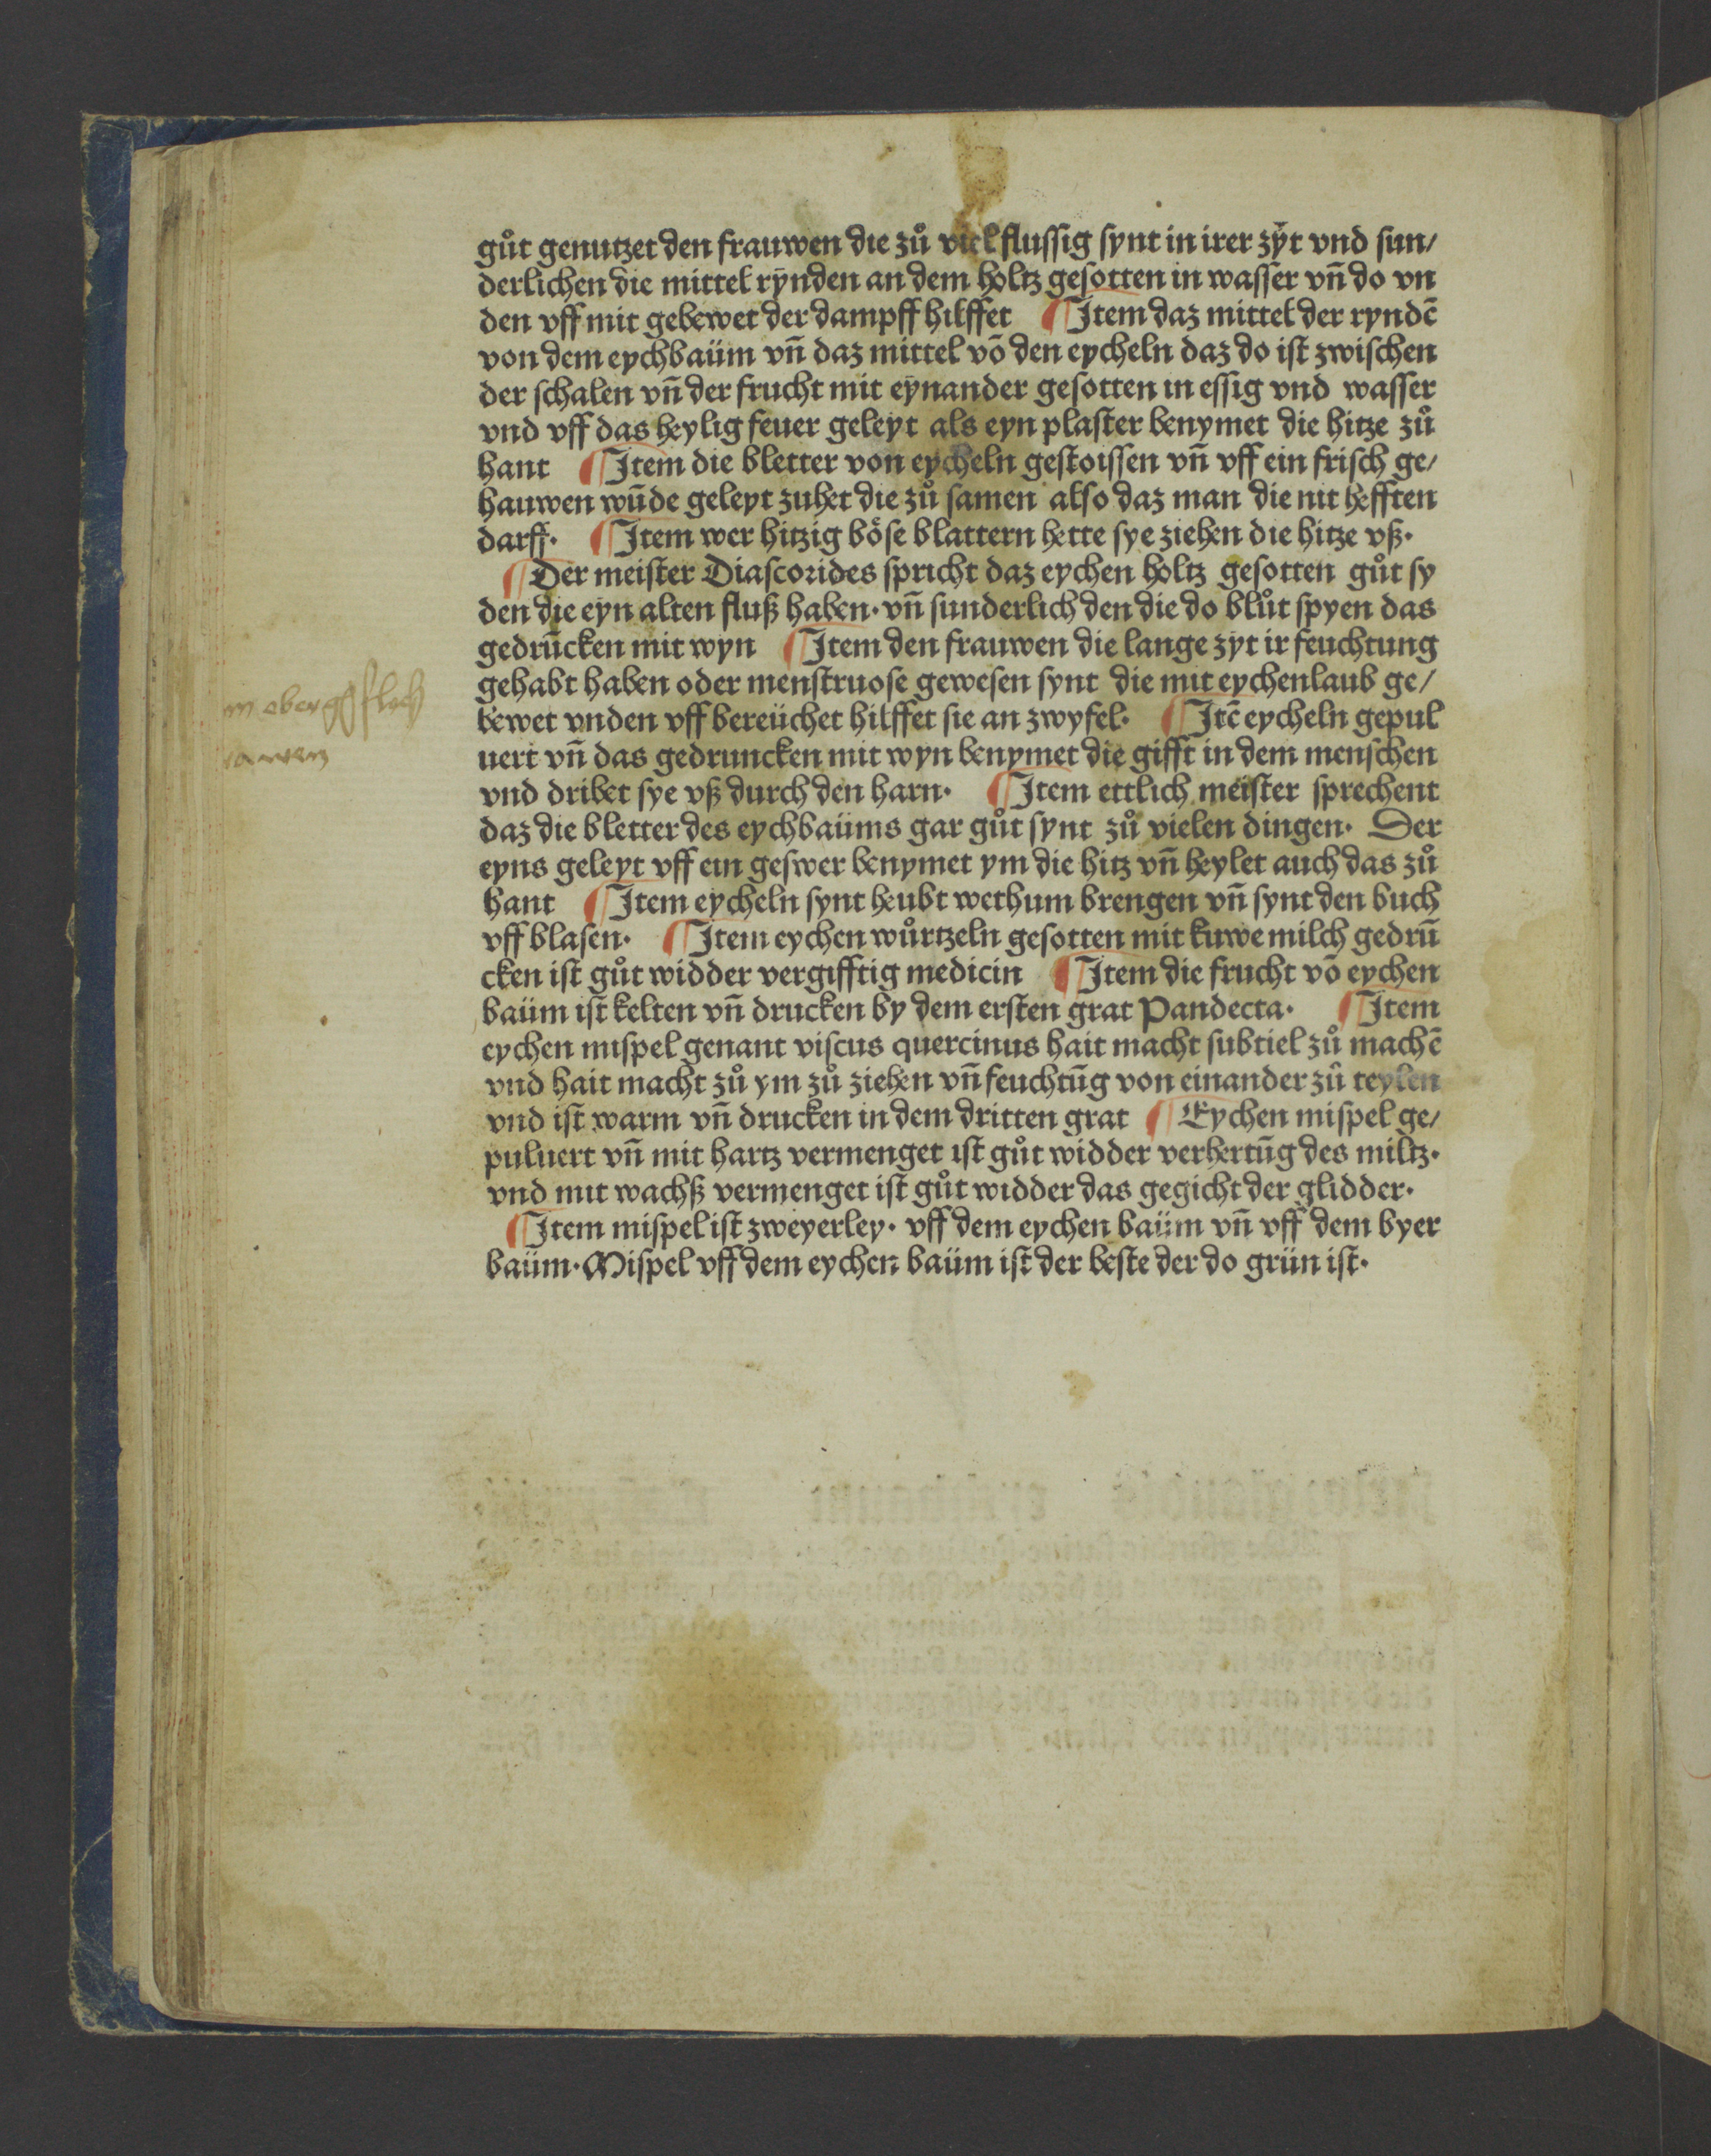 gůt genutzet den frauwen die zů viel flussig synt in irer zÿt vnd sun/
derlichen die mittel rÿnden an dem holtz gesotten in wasser vñ do vn
den vff mit gebewet der dampff hilffet ¶ Item daz mittel der ryndē
von dem eychbaüm vñ daz mittel võ den eycheln daz do ist zwischen
der schalen vñ der frucht mit eÿnander gesotten in essig vnd wasser
vnd vff das heylig feuer geleyt als eyn plaster benymet die hitze zů
hant ¶ Item die bletter von eycheln gestoissen vñ vff ein frisch ge/
hauwen wūde geleyt zuhet die zů samen also daz man die nit hefften
darff· ¶ Item wer hitzig böse blattern hette sye ziehen die hitze vß·
¶ Der meister Diascorides spricht daz eychen holtz gesotten gůt sy
den die eyn alten fluß haben· vñ sunderlich den die do blůt spyen das
gedrūcken mit wyn ¶ Item den frauwen die lange zyt ir feuchtung
gehabt haben oder menstruose gewesen synt die mit eychenlaub ge/
bewet vnden vff bereüchet hilffet sie an zwyfel· ¶ Itē eycheln gepul
uert vñ das gedruncken mit wyn benymet die gifft in dem menschen
vnd dribet sye vß durch den harn· ¶ Item ettlich meister sprechent
daz die bletter des eychbaüms gar gůt synt zů vielen dingen· Der
eyns geleyt vff ein geswer benymet ym die hitz vñ heylet auch das zů
hant ¶ Item eycheln synt heubt wethum brengen vñ synt den buch
vff blasen· ¶ Item eychen wůrtzeln gesotten mit kuwe milch gedrū
cken ist gůt widder vergifftig medicin ¶ Item die frucht võ eychen
baüm ist kelten vñ drucken by dem ersten grat Pandecta· ¶ Item
eychen mispel genant viscus quercinus hait macht subtiel zů machē
vnd hait macht zů ym zů ziehen vñ feuchtūg von einander zů teylen
vnd ist warm vñ drucken in dem dritten grat ¶ Eychen mispel ge/
puluert vñ mit hartz vermenget ist gůt widder verhertūg des miltz·
vnd mit wachß vermenget ist gůt widder das gegicht der glidder·
¶ Item mispel ist zweyerley· vff dem eychen baüm vñ vff dem byer
baüm· Mispel vff dem eychen baüm ist der beste der do grün ist·